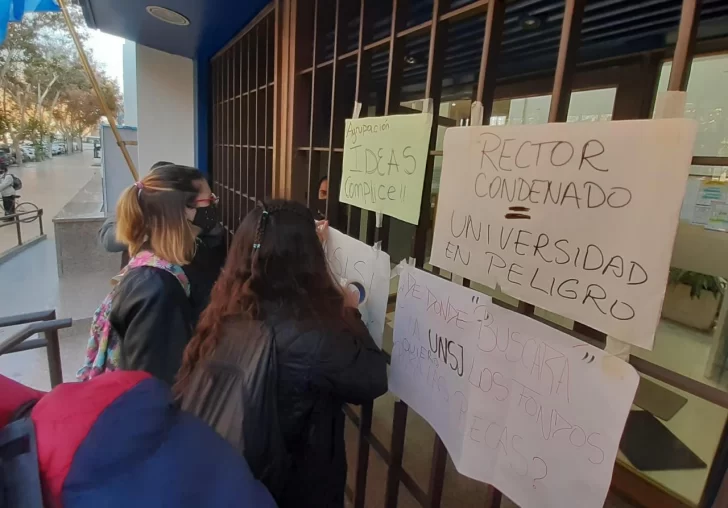 Agrupación
IDEAS
Complice!!
RECTOR
CONDENADO
=
UNIVERSIDAD
EN PELIGRO
DE DONDE "BUSCARÁ"
UNSJ LOS FONDOS
BECAS?